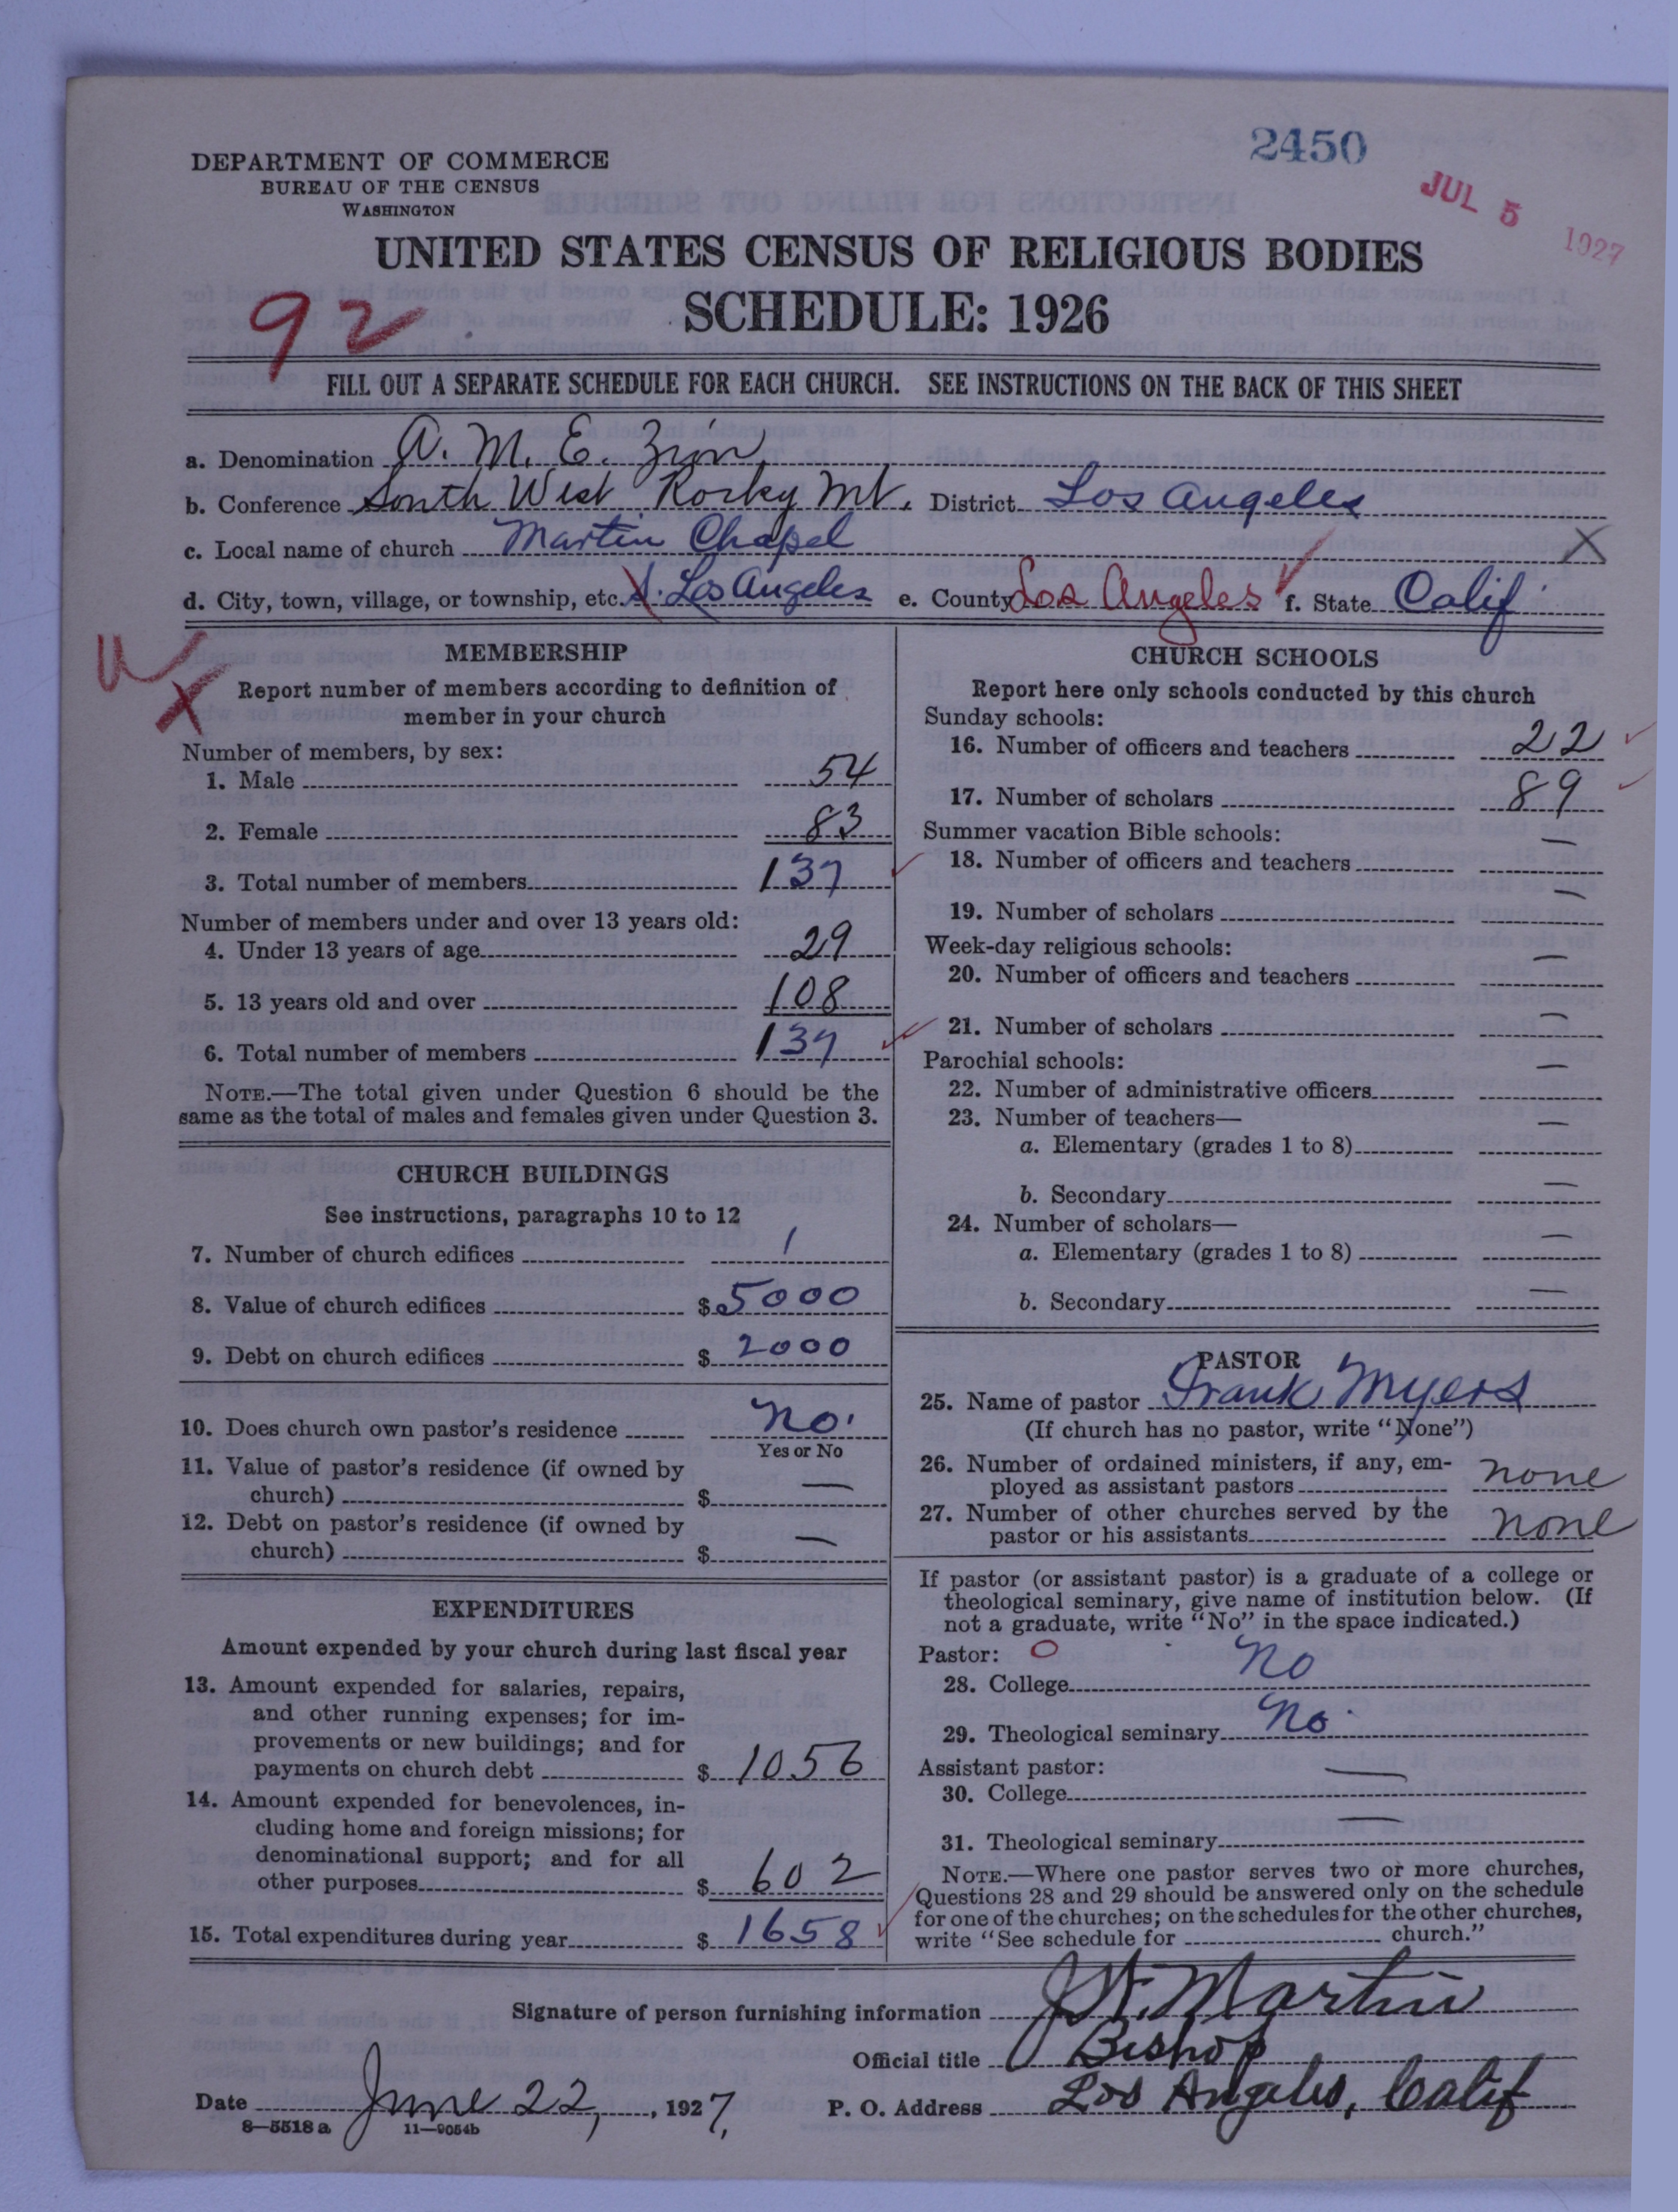 2450
JUL 5 1927
DEPARTMENT OF COMMERCE
BUREAU OF THE CENSUS
WASHINGTON
UNITED STATES CENSUS OF RELIGIOUS BODIES
SCHEDULE: 1926
92
FILL OUT A SEPARATE SCHEDULE FOR EACH CHURCH. SEE INSTRUCTIONS ON THE BACK OF THIS SHEET
a. Denomination A. M. E. Zion
b. Conference South West Rocky Mt. District Los Angeles
c. Local name of church Martin Chapel X
d. City, town, village, or township, etc. S. Los Angeles e. County Los Angeles f. State Calif
MEMBERSHIP
Report number of members according to definition of
member in your church
Number of members, by sex:
1. Male 54
2. Female 83
3. Total number of members 137
Number of members under and over 13 years old:
4. Under 13 years of age 29
5. 13 years old and over 108
6. Total number of members 137
NOTE.—The total given under Question 6 should be the
same as the total of males and females given under Question 3.
CHURCH BUILDINGS
See instructions, paragraphs 10 to 12
7. Number of church edifices 1
8. Value of church edifices $ 5000
9. Debt on church edifices $ 2000
10. Does church own pastor's residence No.
Yes or No
11. Value of pastor's residence (if owned by
church) $ —
12. Debt on pastor's residence (if owned by
church) $ —
EXPENDITURES
Amount expended by your church during last fiscal year
13. Amount expended for salaries, repairs,
and other running expenses; for im-
provements or new buildings; and for
payments on church debt $ 1056
14. Amount expended for benevolences, in-
cluding home and foreign missions; for
denominational support; and for all
other purposes $ 602
15. Total expenditures during year $ 1658
CHURCH SCHOOLS
Report here only schools conducted by this church
Sunday schools:
16. Number of officers and teachers 22
17. Number of scholars 89
Summer vacation Bible schools:
18. Number of officers and teachers —
19. Number of scholars —
Week-day religious schools:
20. Number of officers and teachers —
21. Number of scholars —
Parochial schools:
22. Number of administrative officers —
23. Number of teachers—
a. Elementary (grades 1 to 8) —
b. Secondary —
24. Number of scholars—
a. Elementary (grades 1 to 8) —
b. Secondary —
PASTOR
25. Name of pastor Frank Myers
(If church has no pastor, write "None")
26. Number of ordained ministers, if any, em-
ployed as assistant pastors none
27. Number of other churches served by the
pastor or his assistants none
If pastor (or assistant pastor) is a graduate of a college or
theological seminary, give name of institution below. (If
not a graduate, write "No" in the space indicated.)
Pastor: O
28. College No
29. Theological seminary No.
Assistant pastor:
30. College —
31. Theological seminary —
NOTE.—Where one pastor serves two or more churches,
Questions 28 and 29 should be answered only on the schedule
for one of the churches; on the schedules for the other churches,
write "See schedule for church."
Signature of person furnishing information J. W. Martin
Official title Bishop
Date June 22, 1927, P. O. Address Los Angeles, Calif
8—5518 a 11—9054b